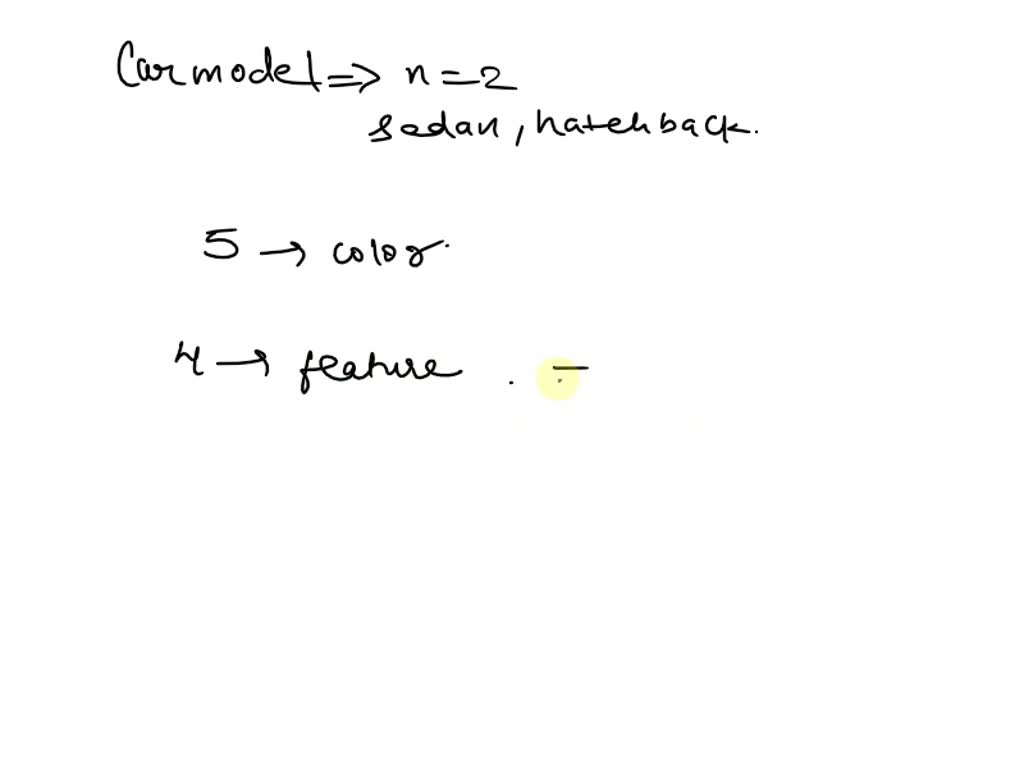 Car model => n = 2
sedan, hatchback.
5 → color.
4 → feature .